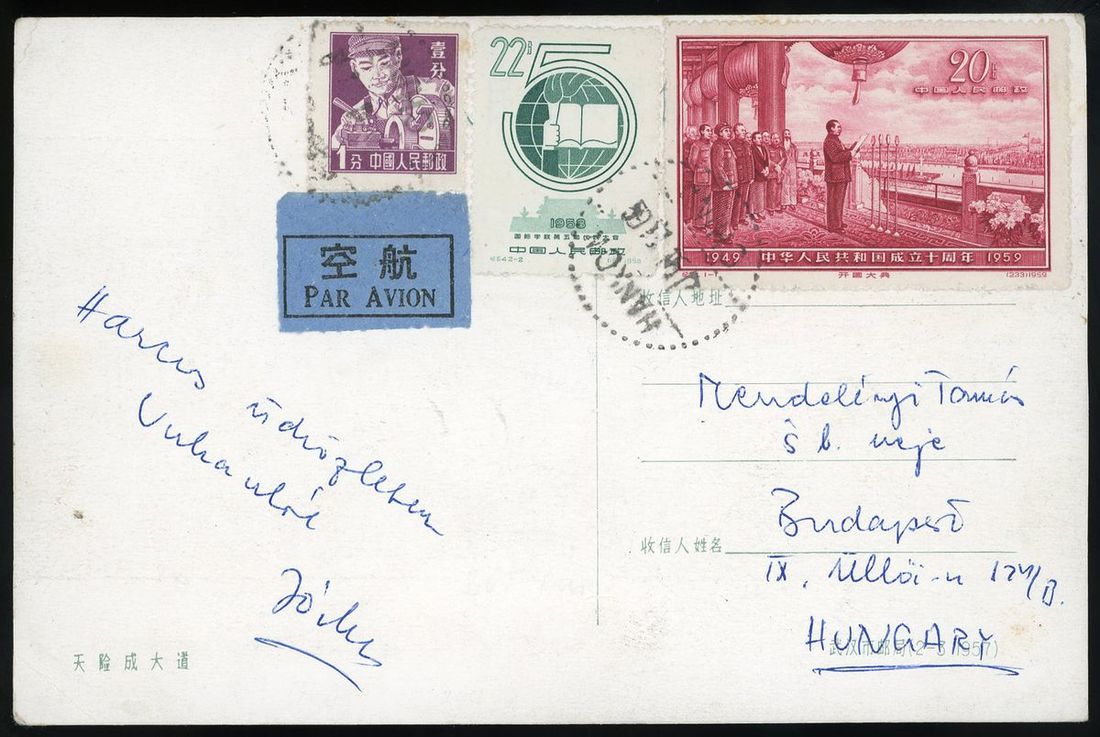 壹分
1分 中國人民郵政
22分
1958
国际学联第五届代表大会
中国人民邮政
20分
中国人民邮政
1949 中华人民共和国成立十周年 1959
开国大典
(233)1959
空航
PAR AVION
HANKOW
收信人地址
üdvözletem
Mendelényi Tamás
neje
Budapest
收信人姓名
IX, Üllői-u
HUNGARY
武汉市邮局(2-3 1957)
天险成大道